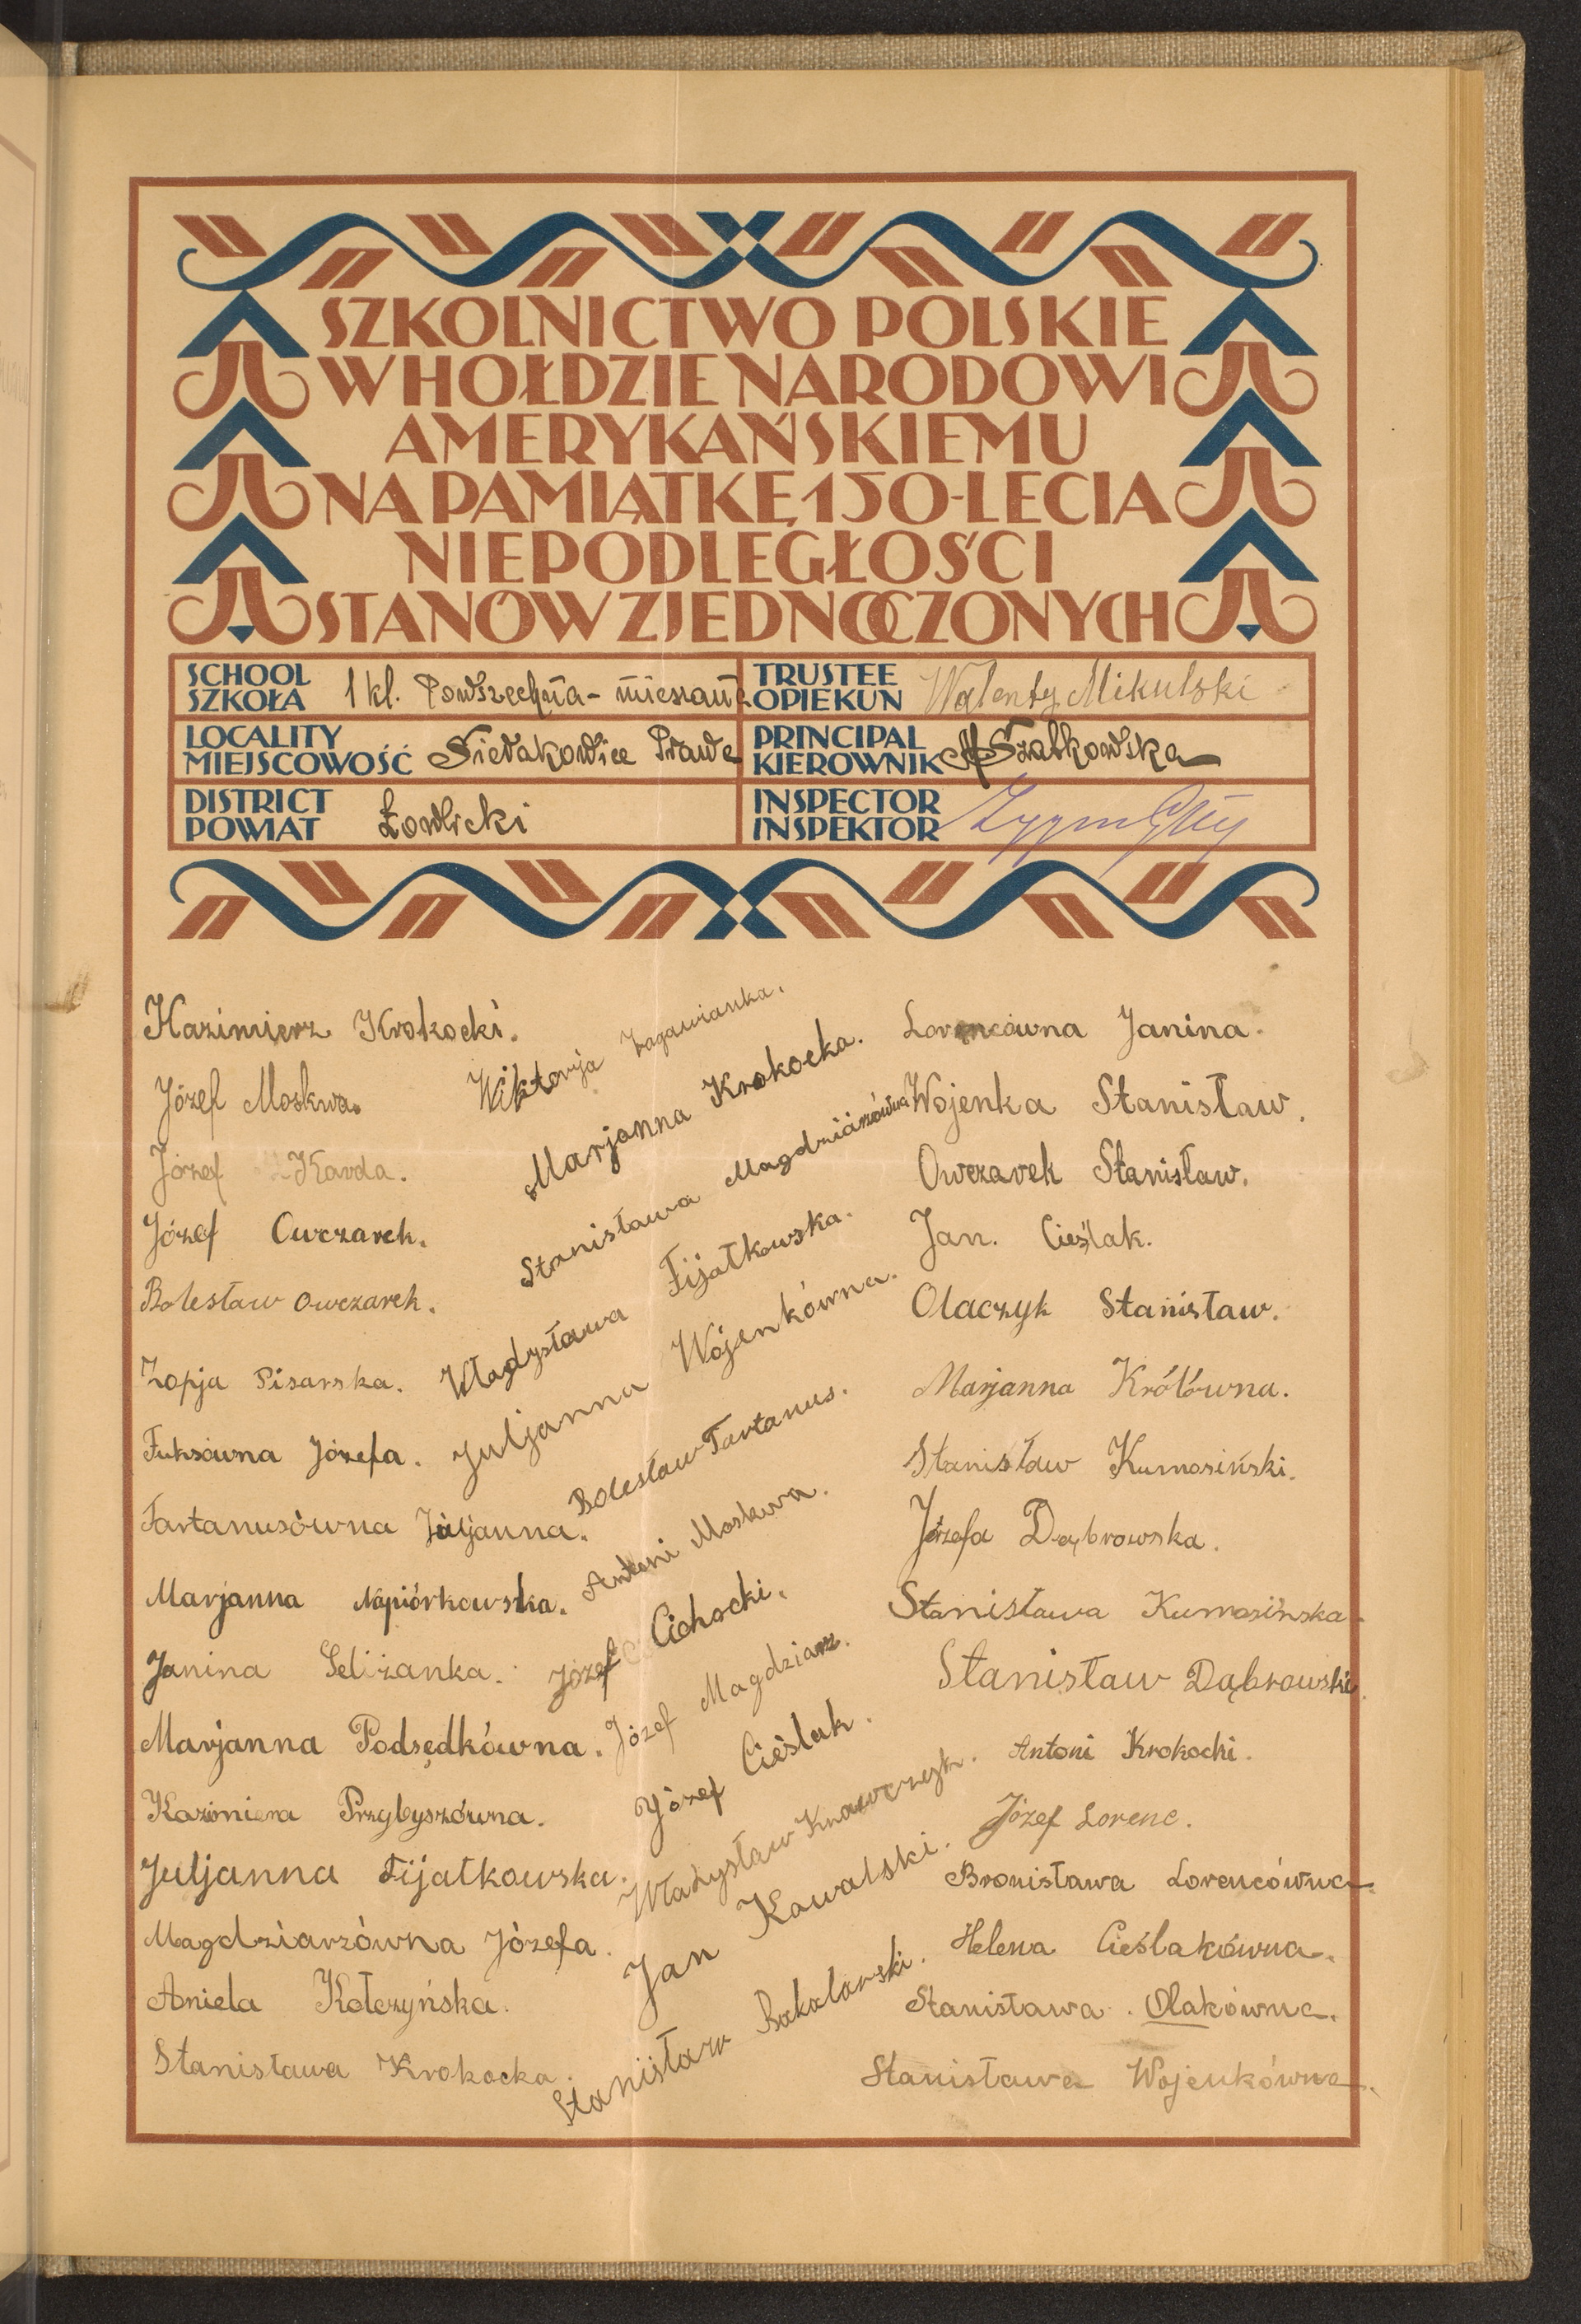 SZKOLNICTWO POLSKIE
W HOŁDZIE NARODOWI
AMERYKAŃSKIEMU
NA PAMIĄTKĘ 150-LECIA
NIEPODLEGŁOŚCI
STANÓW ZJEDNOCZONYCH
SCHOOL
SZKOŁA 1 kl. Powszechna - mieszana
TRUSTEE
OPIEKUN Walenty Mikulski
LOCALITY
MIEJSCOWOŚĆ Sierakowice Prawe
PRINCIPAL
KIEROWNIK Szabkowska
DISTRICT
POWIAT Łowicki
INSPECTOR
INSPEKTOR
Kazimierz Krokocki.
Józef Moskwa.
Józef Karda.
Józef Owczarek.
Bolesław Owczarek.
Zofja Pisarska.
Fuksówna Józefa.
Tartanusówna Juljanna.
Marjanna Napiórkowska.
Janina Seliżanka.
Marjanna Podsędkówna.
Kazimiera Przybyszówna.
Juljanna Fijałkowska.
Magdziarzówna Józefa.
Aniela Kołczyńska.
Stanisława Krokocka.
Wiktorja Zagawianka.
Marjanna Krokocka.
Stanisława Magdziarzówna
Władysława Fijałkowska.
Juljanna Wojenkówna.
Bolesław Tartanus.
Antoni Moskwa.
Józef Cichocki.
Józef Magdziarz.
Józef Cieślak.
Władysław Krawczyk.
Jan Kowalski.
Stanisław Bakalarski.
Lorencówna Janina.
Wojenka Stanisław.
Owczarek Stanisław.
Jan. Cieślak.
Olaczyk Stanisław.
Marjanna Królówna.
Stanisław Kumosiński.
Józefa Dąbrowska.
Stanisława Kumosińska.
Stanisław Dąbrowski.
Antoni Krokocki.
Józef Lorenc.
Bronisława Lorencówna.
Helena Cieślakówna.
Stanisława. Olakówna.
Stanisława Wojenkówna.